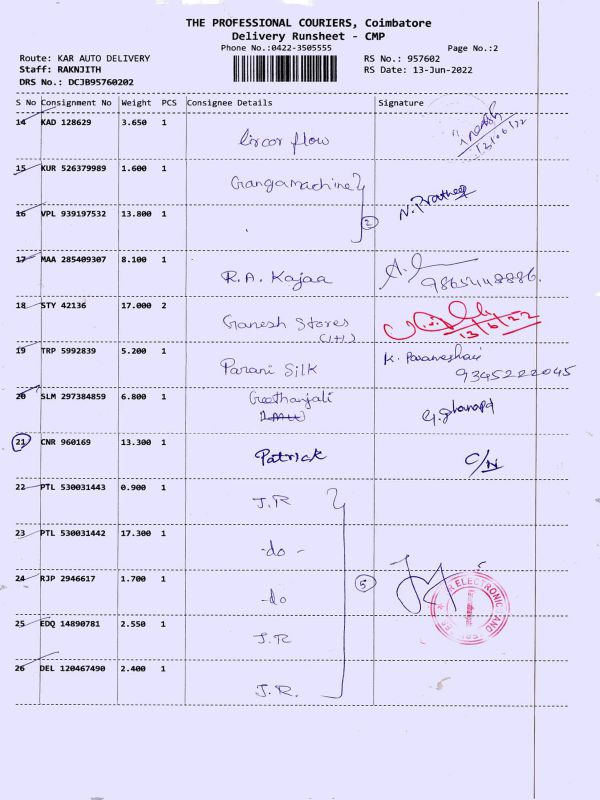 THE PROFESSIONAL COURIERS, Coimbatore
Delivery Runsheet - CMP
Phone No.:0422-3505555
Page No.:2
Route: KAR AUTO DELIVERY
RS No.: 957602
Staff: RAKNJITH
RS Date: 13-Jun-2022
DRS No.: DCJB95760202
S No Consignment No Weight PCS Consignee Details Signature
14 KAD 128629 3.650 1
13/06/22
15 KUR 526379989 1.600 1 Gangamachine
16 VPL 939197532 13.800 1 2 N. Pratheep
17 MAA 285409307 8.100 1
R.A. Kajaa
18 STY 42136 17.000 2
Ganesh Stores
(1+1)
13/6/22
19 TRP 5992839 5.200 1
Parani Silk
K. Parameshari
9345222045
20 SLM 297384859 6.800 1 Geethanjali
21 CNR 960169 13.300 1
Patrick C/N
22 PTL 530031443 0.900 1
J.R
23 PTL 530031442 17.300 1
-do-
24 RJP 2946617 1.700 1
-do 5
25 EDQ 14890781 2.550 1
J.R
26 DEL 120467490 2.400 1
J.R.